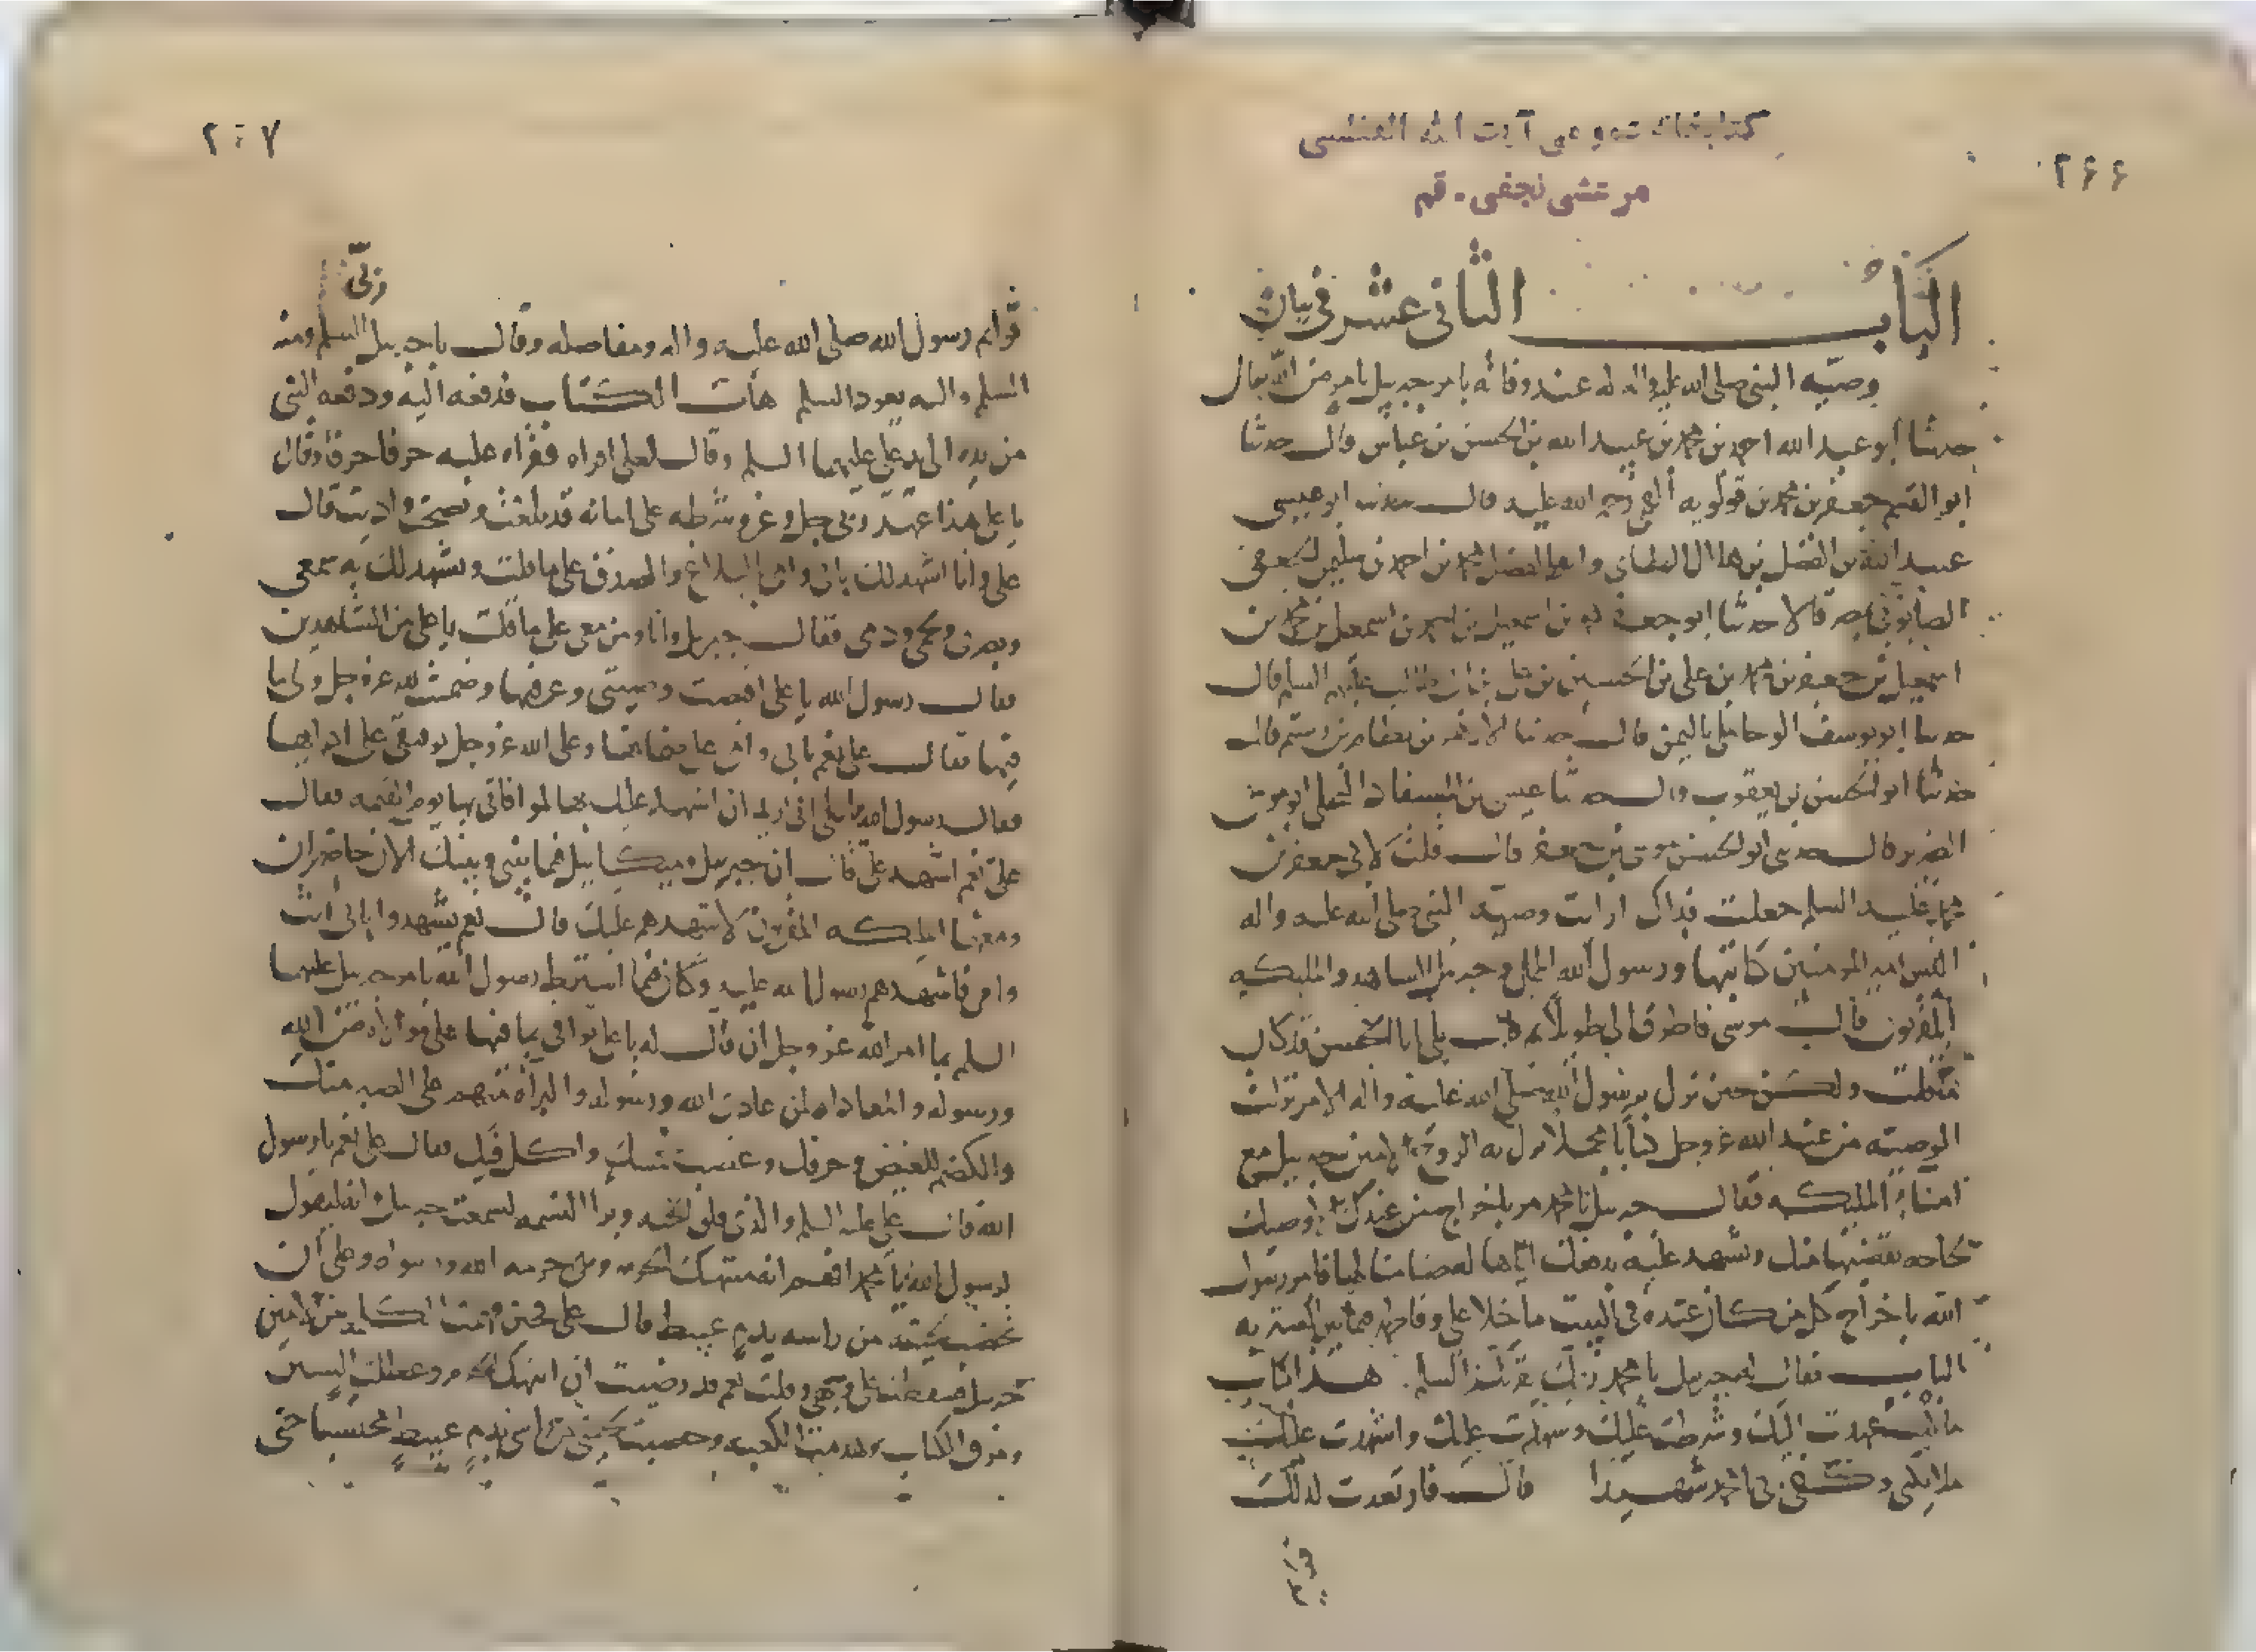 ۲۶۶
كتابخانه عمومی آیت الله العظمی
مرعشی نجفی - قم
الباب الثانی عشر فی بیان
وصیه النبی صلی الله علیه واله له عند وفاته بامر جبرییل بامر من الله تعالی
حدثنا ابو عبد الله احمد بن محمد بن عبید الله بن الحسن بن عباس قال حدثنا
ابو القسم جعفر بن محمد بن قولویه القمی رحمه الله علیه قال حدثنا ابو عیسی
عبید الله بن الفضل بن هلال الطائی وابو الفضل محمد بن احمد بن سلیمن الجعفی
الصابونی بمصر قالا حدثنا ابو جعفر محمد بن اسمعیل بن احمد بن اسمعیل بن محمد بن
اسمعیل بن جعفر بن محمد بن علی بن الحسین بن علی بن ابی طالب علیهم السلم قال
حدثنا ابو یوسف الوحاظی بالیمن قال حدثنا الازهر بن بطام بن رستم قال
حدثنا ابو الحسن بن یعقوب قال حدثنا عیسی بن المستفاد البجلی ابو موسی
الضریر قال حدثنی ابو الحسن موسی بن جعفر قال قلت لابی جعفر بن
محمد علیه السلم جعلت فداک ارایت وصیه النبی صلی الله علیه واله
الیس امیر المومنین كاتبها ورسول الله المملی وجبرئیل الشاهد والملیكه
المقربون قال موسی فاطرق ابی طویلا ثم قال بلی یا ابا الحسن قد كان
ما قلت ولكن حین نزل برسول الله صلی الله علیه واله الامر نزلت
الوصیه من عند الله عز وجل كتابا مسجلا نزل به الروح الامین جبرییل مع
امناء الملیكه فقال جبرئیل یا محمد مر باخراج من عندك الا وصیك
لیقبضها منك ویشهد علیه بدفعك ایاها لعضامنا لها فامر رسول
الله باخراج كل من كان عنده فی البیت ما خلا علی وفاطمه فیما بین الستر به
الباب فقال له جبرییل یا محمد ربك یقرئك السلم هذا كتاب
ما كنت عهدت الیك وشرطت علیك وشهدت علیك واشهدت علیك
ملائكتی وكفی بی یا محمد شهیدا قال فارتعدت لذلك
۲۶۷
ربی
قوایم رسول الله صلی الله علیه واله ومفاصله وقال یا جبرییل السلم ومنه
السلم والیه یعود السلم هات الكتاب فدفعه الیه ودفعه النبی
من یده الی ید علی علیهما السلم وقال لعلی اقراه فقراه علیه حرفا حرفا وقال
یا علی هذا عهد ربی جل وعز وشرطه علی امانه قد بلغت ونصحت وادیت قال
علی وانا اشهد لك بابی وامی بالبلاغ والصدق علی ما قلت ویشهد لك به سمعی
وبصری ولحمی ودمی فقال جبریل وانا ومن معی علی ما قلت یا علی من الشاهدین
فقال رسول الله یا علی اقبضت وصیتی وعرفتها وضمنت لله عز وجل ولی ما
فیها فقال علی نعم بابی وامی علی ضمانها وعلی الله عز وجل توفیقی علی ادایها
فقال رسول الله یا علی انی ارید ان اشهد علیك بها لموافاتی بها یوم القیمه فقال
علی نعم اشهد علی قال ان جبرییل ومیكاییل فیما بینی وبینك الان حاضران
ومعهما الملیكه المقربون لاشهدهم علیك قال نعم یشهدوا بابی انت
وامی فاشهدهم رسول الله علیه وكان فیما اشترط رسول الله بامر جبرییل علیهما
السلم بما امر الله عز وجل ان قال له یا علی توافی بما فیها علی موالاه من الله
ورسوله والمعاداه لمن عادی الله ورسوله والبرآه منهم علی الصبر منك
والكظم للغیض وحرقك وغصب نفسك واكل فیك فقال علی نعم یا رسول
الله قال علی علیه السلم والذی فلق الحبه وبرا النسمه لسمعت جبرییل انه لیقول
لرسول الله یا محمد افهمه انه منتهك الحرمه وهی حرمه الله ورسوله وعلی ان
تخضب لحیته من راسه بدم عبیط قال علی فحین فهمت الكلمه من الامین
جبرییل صعقت علی وجهی وقلت نعم قد رضیت ان انتهكت الحرم وعطلت السنن
ومزق الكتاب وهدمت الكعبه وخضبت لحیتی من راسی بدم عبیط محتسبا حتی